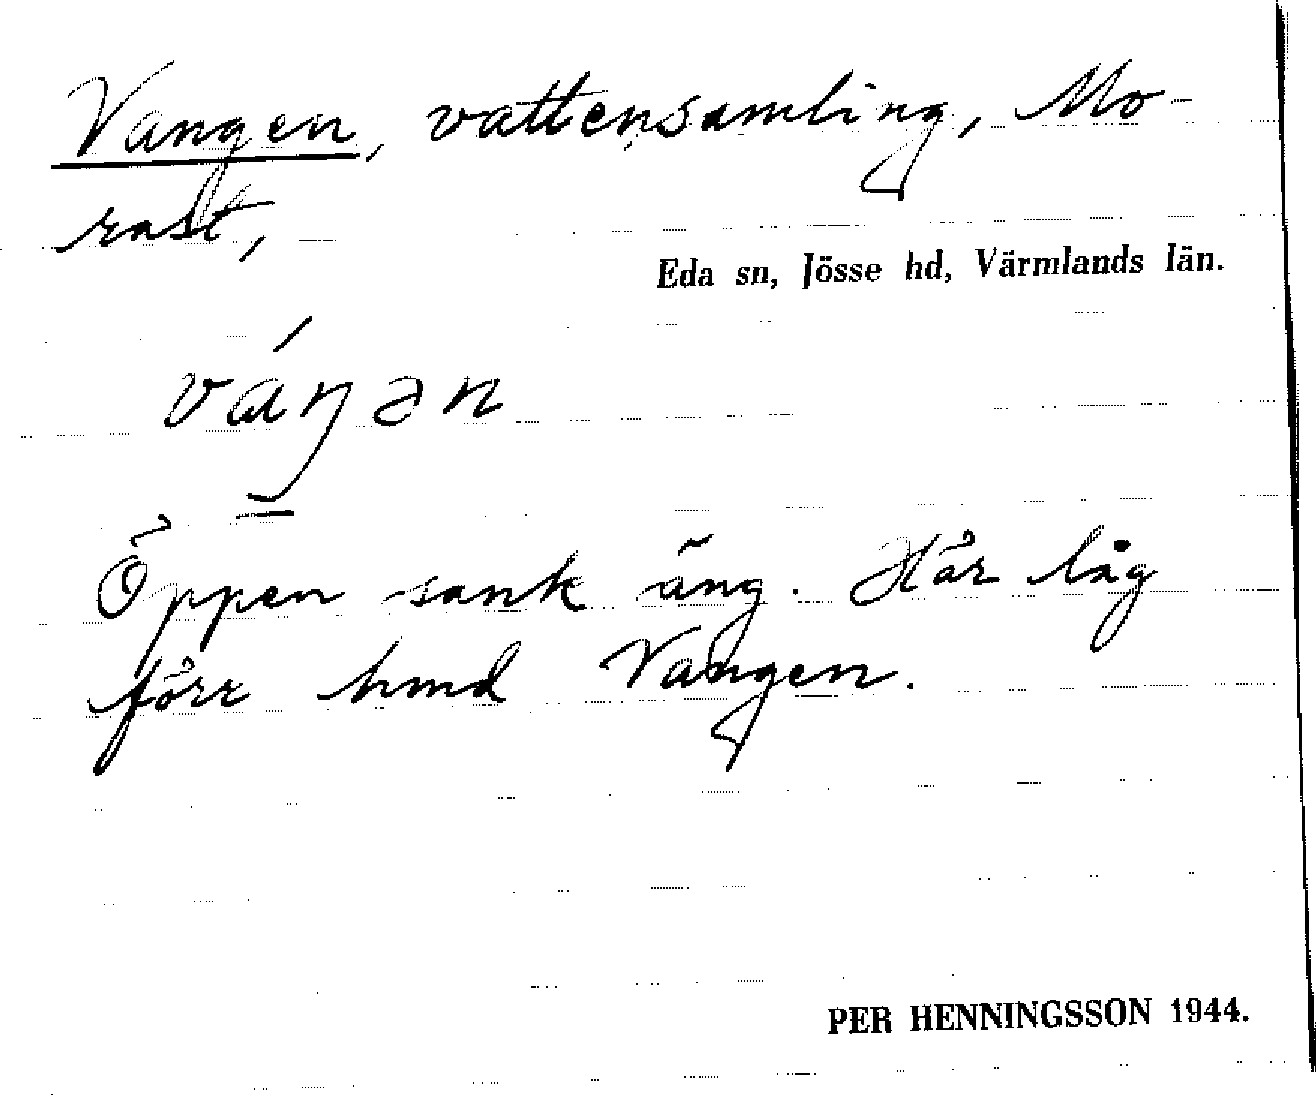 Vangen, vattensamling, Mo-
rast,
Eda sn, Jösse hd, Värmlands län.
váŋən
Öppen sank äng. Här låg
förr hmd Vangen.
PER HENNINGSSON 1944.